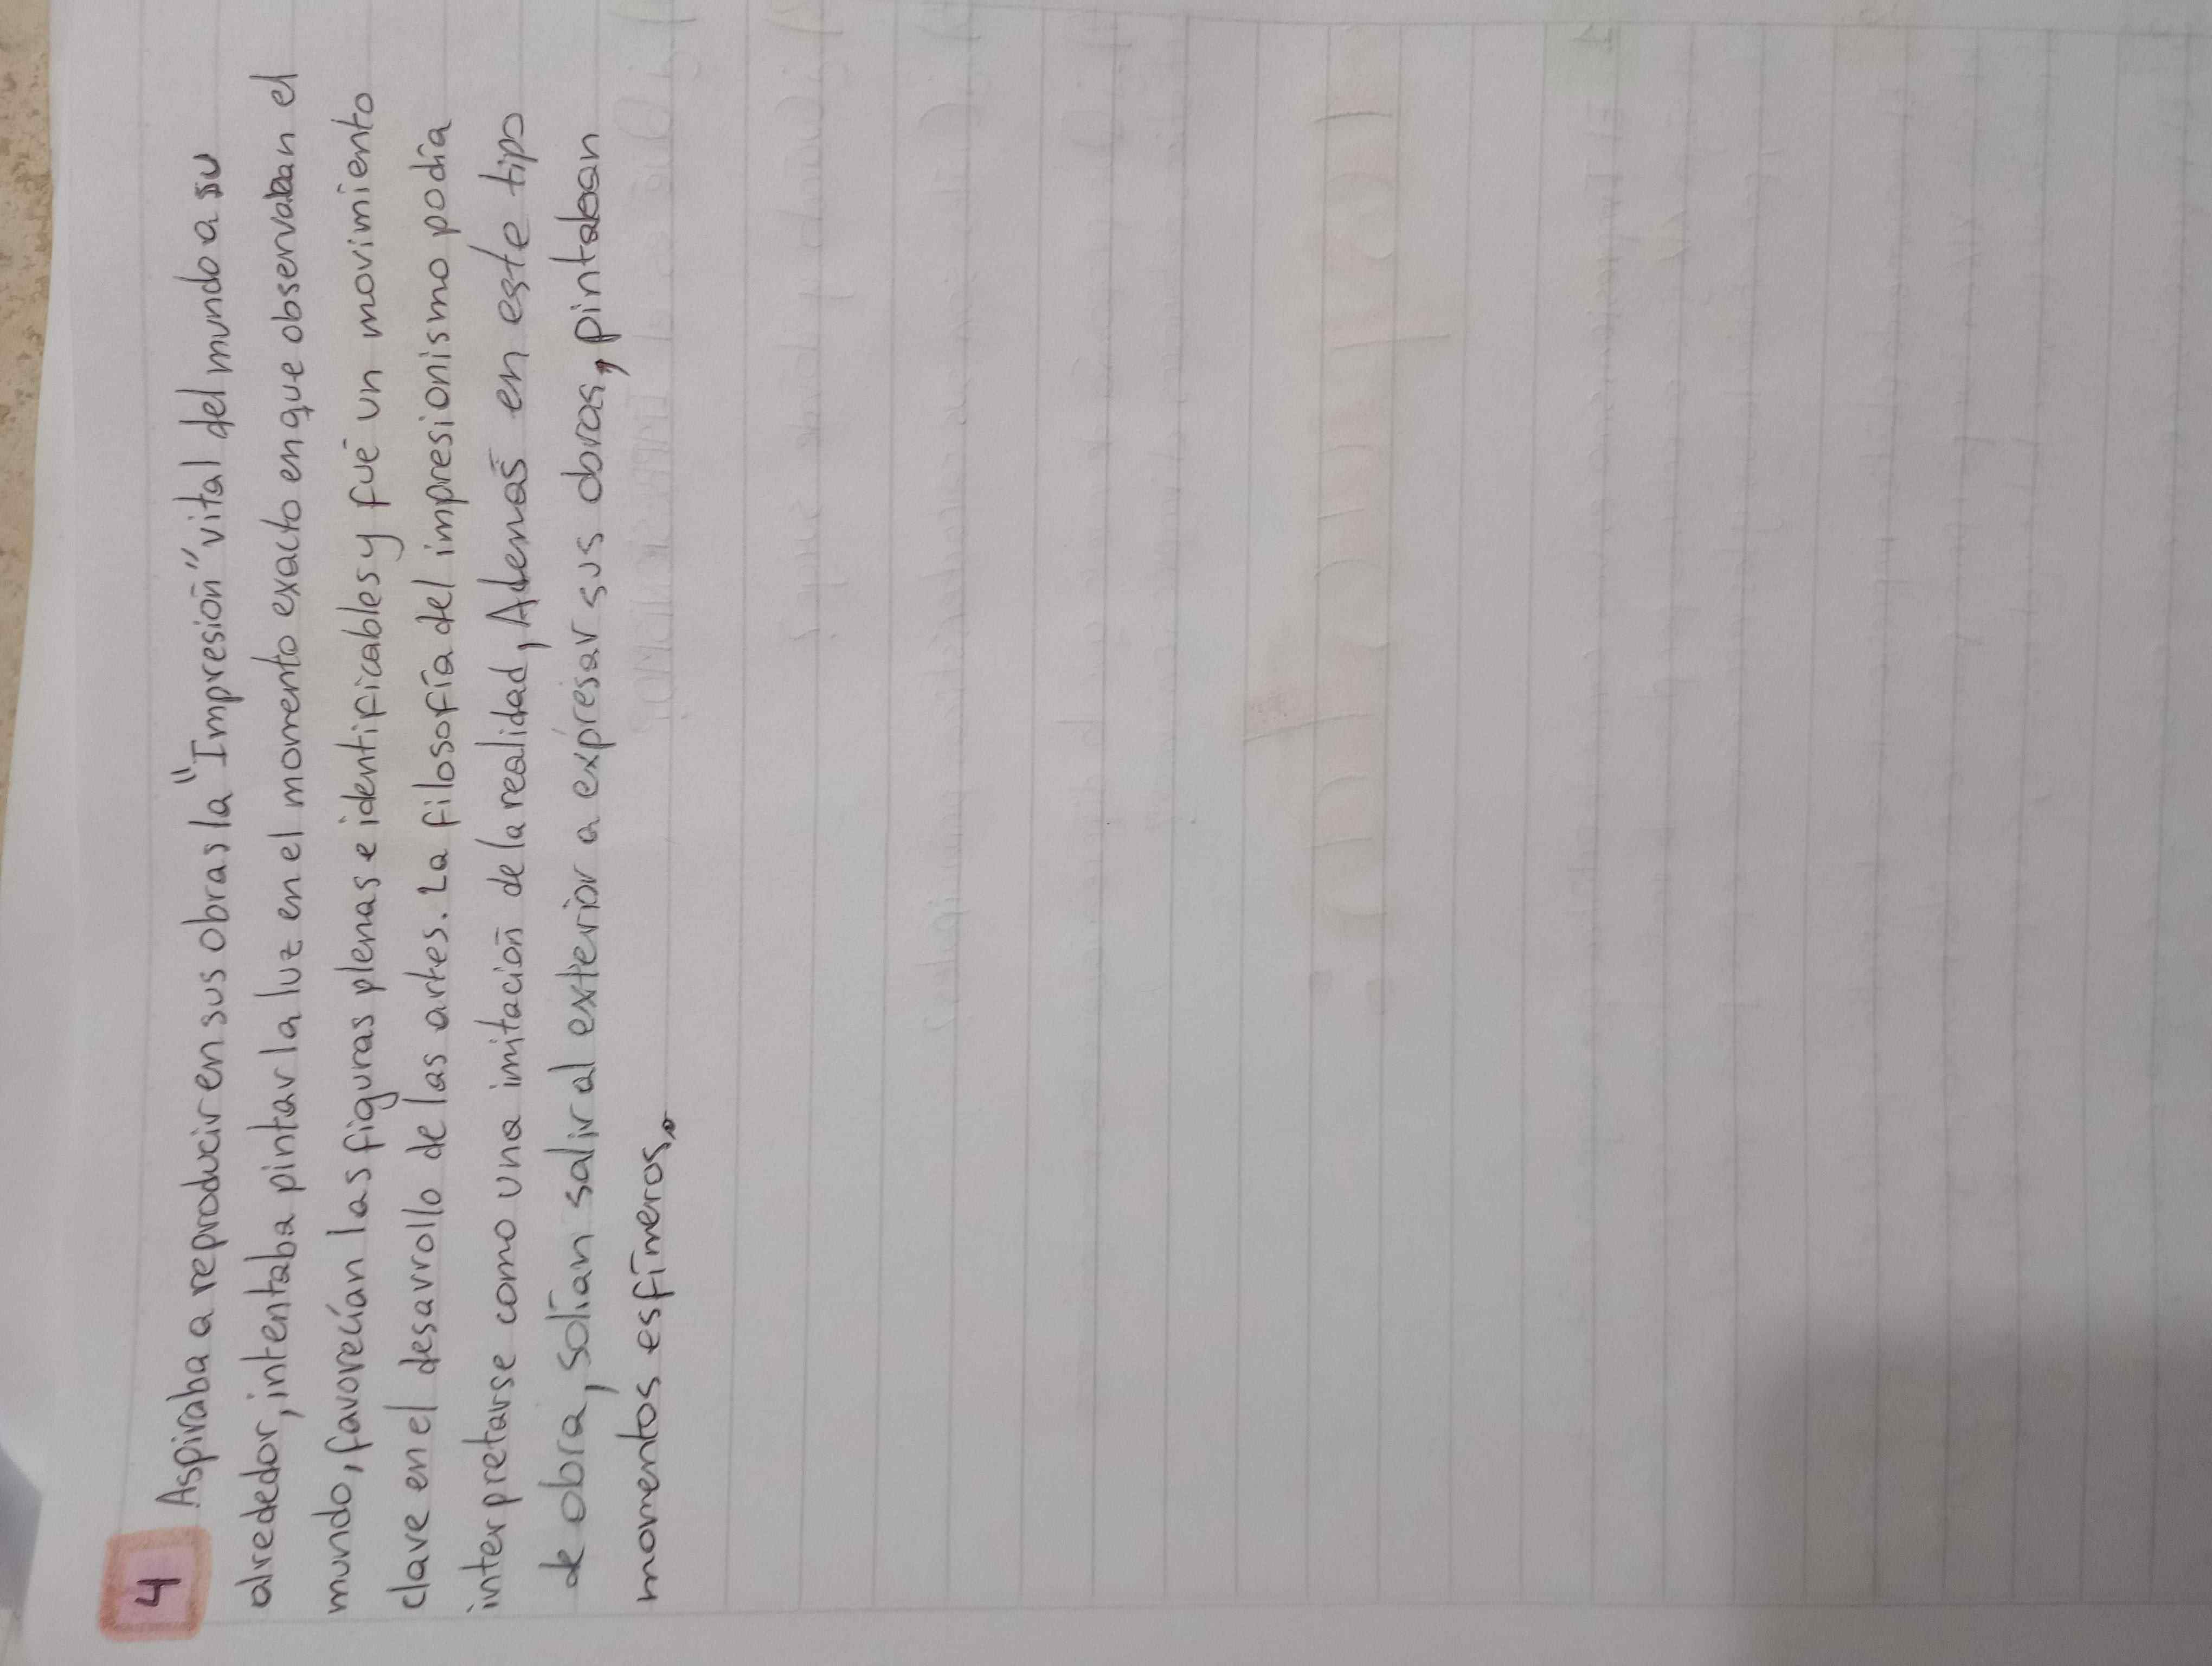 4 Aspiraba a reproducir en sus obras la "Impresión" vital del mundo a su
alrededor, intentaba pintar la luz en el momento exacto en que observaban el
mundo, favorecían las figuras plenas e identificables y fué un movimiento
clave en el desarrollo de las artes. La filosofía del impresionismo podía
interpretarse como una imitación de la realidad, Ademas en este tipo
de obra, solían salir al exterior a expresar sus obras, pintaban
momentos esfímeros.